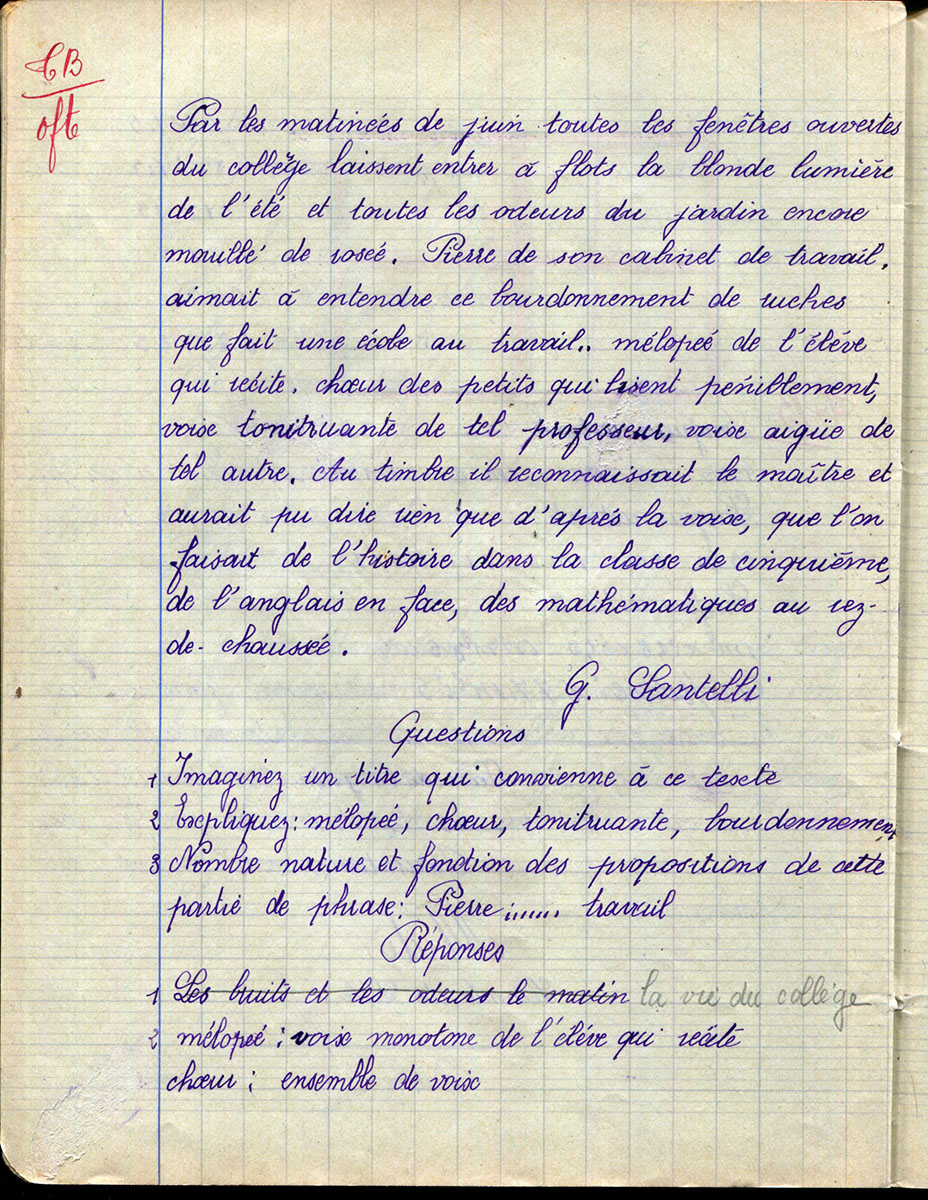 CB
oft
Par les matinées de juin toutes les fenêtres ouvertes
du collège laissent entrer à flots la blonde lumière
de l'été et toutes les odeurs du jardin encore
mouillé de rosée. Pierre de son cabinet de travail,
aimait à entendre ce bourdonnement de ruches
que fait une école au travail.. mélopée de l'élève
qui récite. chœur des petits qui lisent péniblement,
voix tonitruante de tel professeur, voix aigüe de
tel autre. Au timbre il reconnaissait le maître et
aurait pu dire rien que d'après la voix, que l'on
faisait de l'histoire dans la classe de cinquième,
de l'anglais en face, des mathématiques au rez-
de-chaussée.
G. Santelli
Questions
1 Imaginez un titre qui convienne à ce texte
2 Expliquez: mélopée, chœur, tonitruante, bourdonnement
3 Nombre nature et fonction des propositions de cette
partie de phrase: Pierre ...... travail
Réponses
1 Les bruits et les odeurs le matin la vie du collège
2 mélopée : voix monotone de l'élève qui récite
chœur : ensemble de voix